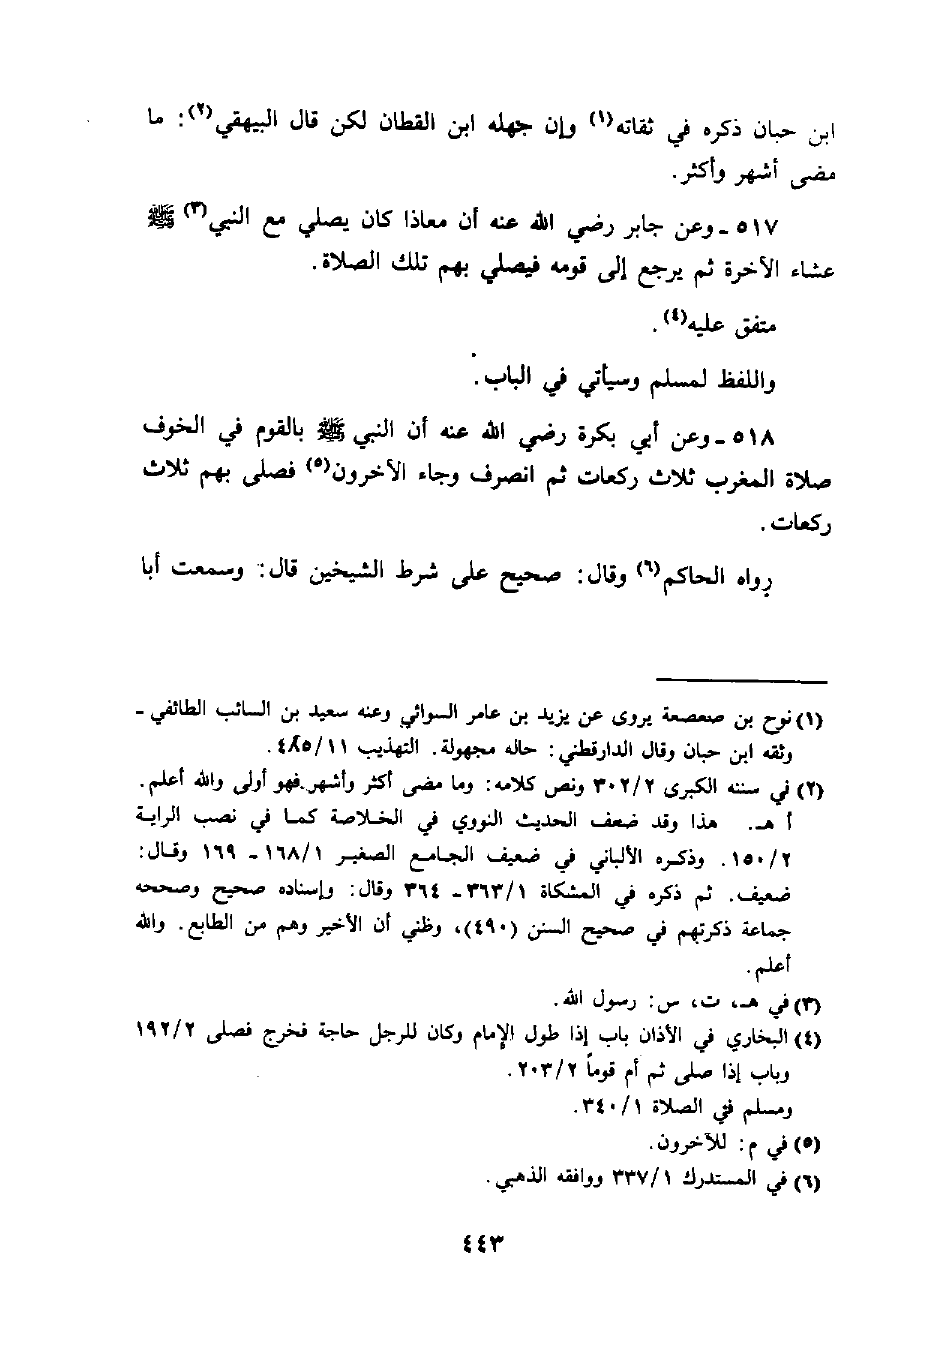 ابن حبان ذكره في ثقاته(١) وإن جهله ابن القطان لكن قال البيهقي(٢): ما
مضى أشهر وأكثر.
٥١٧ ـ وعن جابر رضي الله عنه أن معاذا كان يصلي مع النبي(٣) ﷺ
عشاء الآخرة ثم يرجع إلى قومه فيصلي بهم تلك الصلاة.
متفق عليه(٤).
واللفظ لمسلم وسيأتي في الباب.
٥١٨ ـ وعن أبي بكرة رضي الله عنه أن النبي ﷺ بالقوم في الخوف
صلاة المغرب ثلاث ركعات ثم انصرف وجاء الآخرون(٥) فصلى بهم ثلاث
ركعات.
رواه الحاكم(٦) وقال: صحيح على شرط الشيخين قال: وسمعت أبا
(١) نوح بن صعصعة يروى عن يزيد بن عامر السوائي وعنه سعيد بن السائب الطائفي ـ
وثقه ابن حبان وقال الدارقطني: حاله مجهولة. التهذيب ٤٨٥/١١.
(٢) في سننه الكبرى ٣٠٢/٢ ونص كلامه: وما مضى أكثر وأشهر فهو أولى والله أعلم.
أ هـ. هذا وقد ضعف الحديث النووي في الخلاصة كما في نصب الراية
١٥٠/٢. وذكره الألباني في ضعيف الجامع الصغير ١٦٨/١ ـ ١٦٩ وقال:
ضعيف. ثم ذكره في المشكاة ٣٦٣/١ ـ ٣٦٤ وقال: وإسناده صحيح وصححه
جماعة ذكرتهم في صحيح السنن (٤٩٠)، وظني أن الأخير وهم من الطابع. والله
أعلم.
(٣) في هـ، ت، س: رسول الله.
(٤) البخاري في الأذان باب إذا طول الإمام وكان للرجل حاجة فخرج فصلى ١٩٢/٢
وباب إذا صلى ثم أم قوماً ٢٠٣/٢.
ومسلم في الصلاة ٣٤٠/١.
(٥) في م: للآخرون.
(٦) في المستدرك ٣٣٧/١ ووافقه الذهبي.
٤٤٣